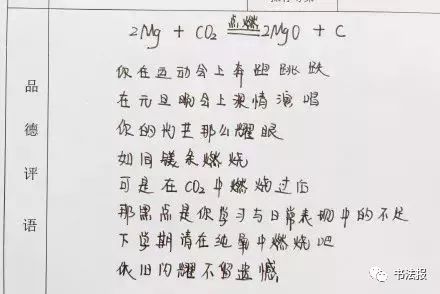 点燃
2Mg + CO₂ ═══ 2MgO + C
品德评语
你在运动会上奔跑跳跃
在元旦晚会上激情演唱
你的光芒那么耀眼
如同镁条燃烧
可是在CO₂中燃烧过后
那黑点是你学习与日常表现中的不足
下学期请在纯氧中燃烧吧
依旧闪耀不留遗憾
书法报